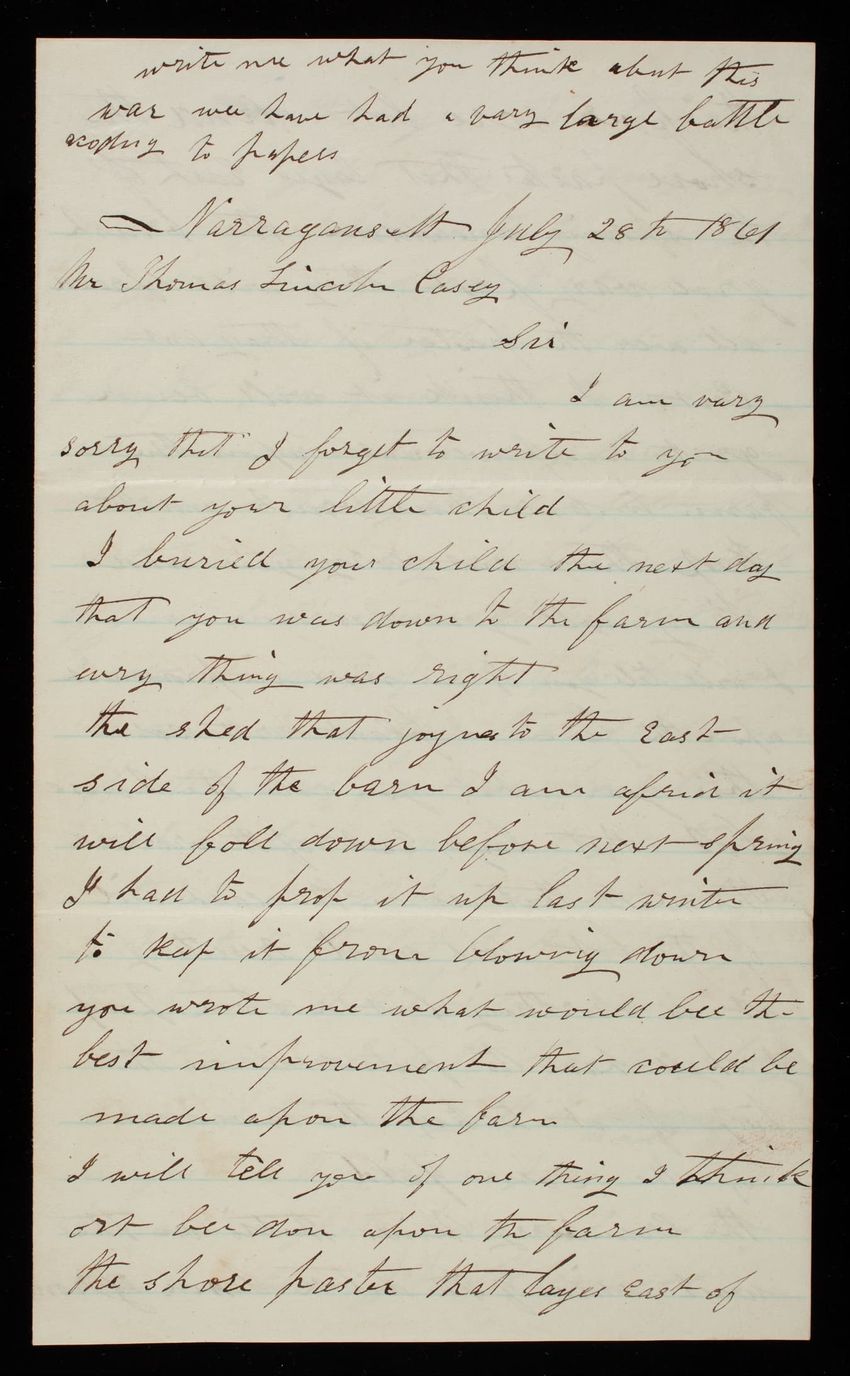 write me what you think abut this
war wee have had a vary large battle
acoding to papers
Narragansett July 28th 1861
Mr Thomas Lincoln Casey
Sir
I am vary
sorry that I forget to write to you
about your little child
I buried your child the next day
that you was down to the farm and
evry thing was right
the shed that joynes to the East
side of the barn I am afrid it
will foll down before next spring
I had to prop it up last winter
to keep it from blowing down
you wrote me what would bee the
best improvement that could be
made apon the farm
I will tell you of one thing I think
ort bee don apon th farm
the shore paster that layes East of